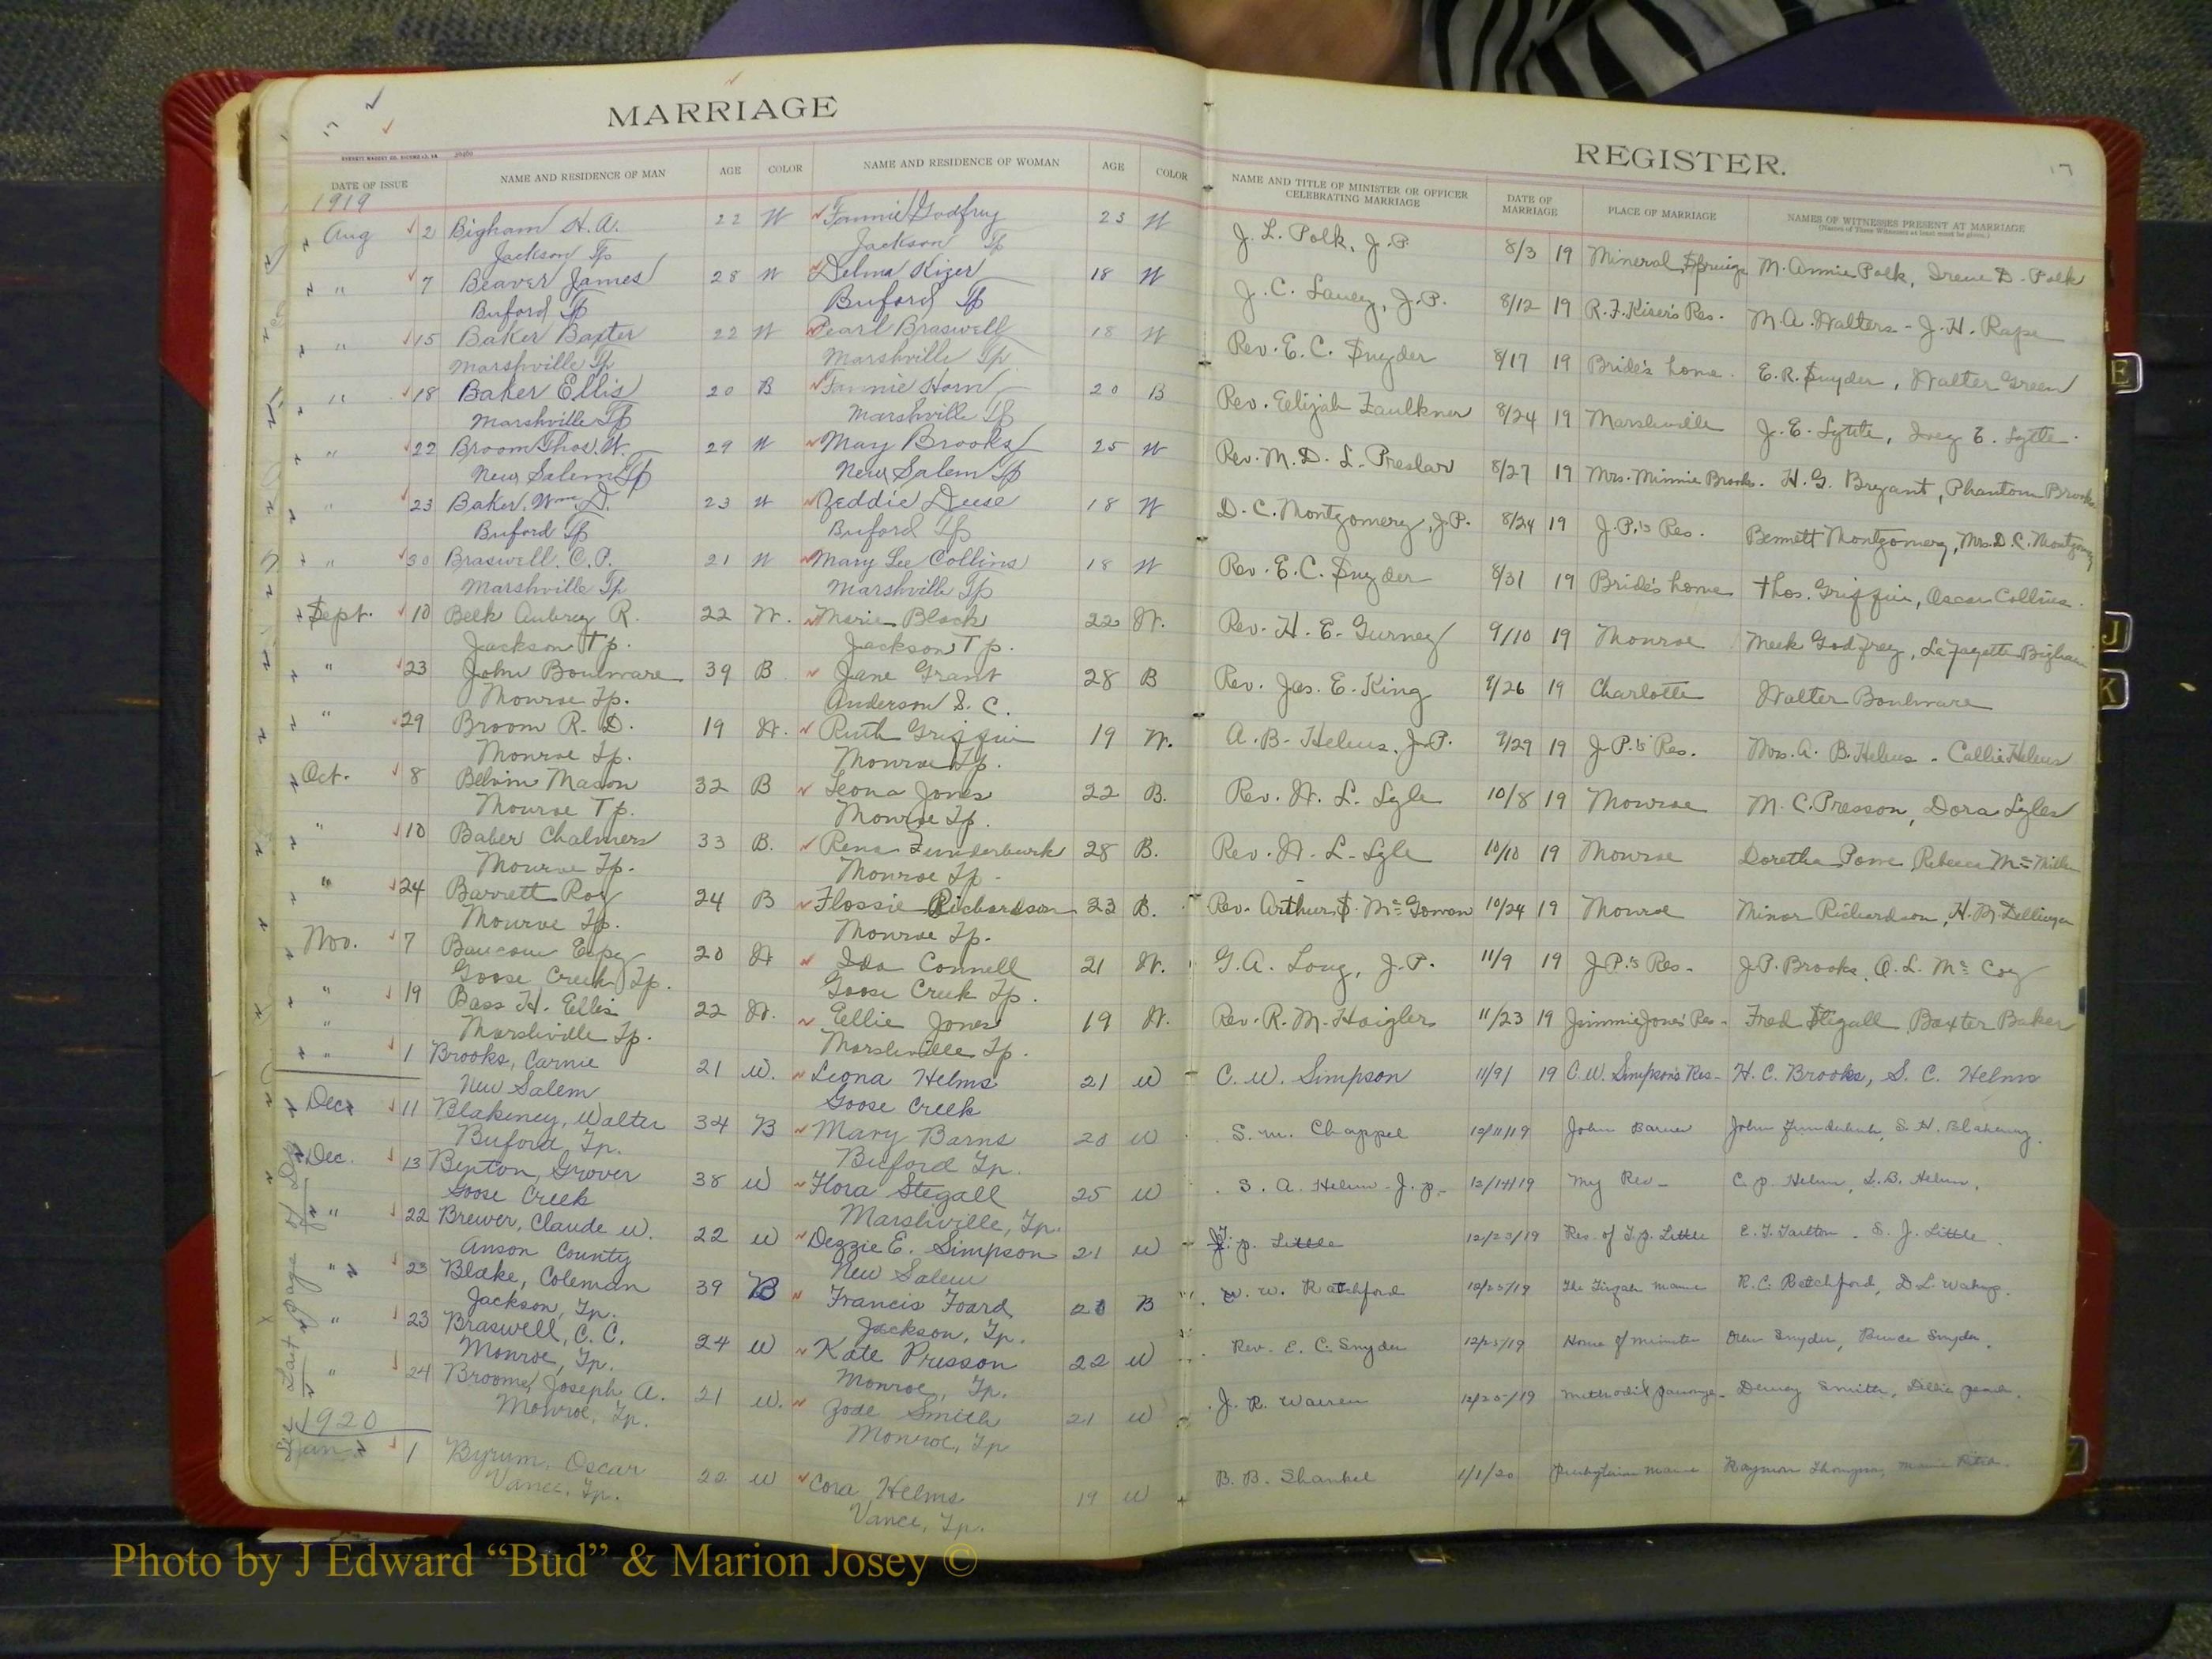 MARRIAGE
REGISTER.
DATE OF ISSUE NAME AND RESIDENCE OF MAN AGE COLOR NAME AND RESIDENCE OF WOMAN AGE COLOR NAME AND TITLE OF MINISTER OR OFFICER CELEBRATING MARRIAGE DATE OF MARRIAGE PLACE OF MARRIAGE NAMES OF WITNESSES PRESENT AT MARRIAGE
(Names of Three Witnesses at least must be given.)
1919
Aug 2 Bigham H. A. 22 W Fannie Godfrey 23 W J. L. Polk, J.P. 8/3 19 Mineral Springs M. Annie Polk, Irene D. Polk
Jackson Tp Jackson Tp
" 7 Beaver James 28 W Delma Kizer 18 W J. C. Laney, J.P. 8/12 19 R. F. Kiser's Res. M. A. Walters - J. H. Rape
Buford Tp Buford Tp
" 15 Baker Baxter 22 W Pearl Braswell 18 W Rev. E. C. Snyder 8/17 19 Bride's home. E. R. Snyder, Walter Green
Marshville Tp Marshville Tp
" 18 Baker Ellis 20 B Fannie Horn 20 B Rev. Eelijah Faulkner 8/24 19 Marshville J. E. Lytle, E. Lytle.
Marshville Tp Marshville Tp
" 22 Broom Thos. W. 29 W Mary Brooks 25 W Rev. M. D. L. Preslar 8/27 19 Mrs. Minnie Brooks. H. G. Bryant, Phantom Brooks
New Salem Tp New Salem Tp
" 23 Baker, Wm D. 23 W Zeddie Deese 18 W D. C. Montgomery, J.P. 8/24 19 J.P.'s Res. Bennett Montgomery, Mrs. D. C. Montgomery
Buford Tp Buford Tp
" 30 Braswell, C. P. 21 W Mary Lee Collins 18 W Rev. E. C. Snyder 8/31 19 Bride's home Thos. Griffin, Oscar Collins.
Marshville Tp Marshville Tp
Sept. 10 Belk Aubrey R. 22 W. Marie Black 22 W. Rev. H. E. Gurney 9/10 19 Monroe Meek Godfrey, Lafayette Bigham
Jackson Tp. Jackson Tp.
" 23 John Boulware 39 B Jane Grant 28 B Rev. Jas. E. King 9/26 19 Charlotte Walter Boulware
Monroe Tp. Anderson S. C.
" 29 Broom R. D. 19 W. Ruth Griffin 19 W. A. B. Helms, J.P. 9/29 19 J.P.'s Res. Mrs. A. B. Helms - Callie Helms
Monroe Tp. Monroe Tp.
Oct. 8 Belvin Mason 32 B Leona Jones 22 B. Rev. W. L. Lyle 10/8 19 Monroe M. C. Presson, Dora Lyles
Monroe Tp. Monroe Tp.
" 10 Baber Chalmers 33 B. Rena Funderburk 28 B. Rev. W. L. Lyle 10/10 19 Monroe Doretha Rebecca
Monroe Tp. Monroe Tp.
" 24 Barrett Roy 24 B Flossie Richardson 23 B. Rev. Arthur S. McGowan 10/24 19 Monroe Minor Richardson, H. M. Dellinger
Monroe Tp. Monroe Tp.
Nov. 7 Baucom Espy 20 W Ida Connell 21 W. G. A. Long, J.P. 11/9 19 J.P.'s Res. J. P. Brooks, Q. L. McCoy
Goose Creek Tp. Goose Creek Tp.
" 19 Bass H. Ellis 22 W. Ellie Jones 19 W. Rev. R. M. Haigler 11/23 19 Jimmie Jones' Res - Fred Stegall, Baxter Baker
" Marshville Tp. Marshville Tp.
" 1 Brooks, Carnie 21 W. Leona Helms 21 W C. W. Simpson 11/9/ 19 C. W. Simpson's Res - H. C. Brooks, S. C. Helms
New Salem Goose Creek
Dec 11 Blakeney, Walter 34 B Mary Barns 20 W S. M. Chappel 12/11/19 John Barnes John Funderburk, S. H. Blakeney.
Buford, Tp. Buford Tp.
Dec. 13 Benton, Grover 38 W Flora Stegall 25 W S. A. Helms - J. P. 12/14/19 My Res - C. P. Helms, L. B. Helms.
Goose Creek Marshville, Tp.
" 22 Brewer, Claude W. 22 W Dezzie E. Simpson 21 W P. Little 12/23/19 Res. of T. P. Little E. T. Tarlton. S. J. Little
Anson County New Salem
" 23 Blake, Coleman 39 B Francis Foard 20 B W. W. Ratchford 12/25/19 The Tirzah Manse R. C. Ratchford, D. L.
Jackson, Tp. Jackson, Tp.
" 23 Braswell, C. C. 24 W Kate Presson 22 W Rev. E. C. Snyder 12/25/19 Home of minister Oren Snyder, Bruce Snyder.
Monroe, Tp. Monroe, Tp.
" 24 Broome, Joseph A. 21 W. Zode Smith 21 W J. R. Warren 12/25/19 Methodist Parsonage - Dewey Smith,
Monroe, Tp. Monroe, Tp
1920
Jan. 1 Byrum, Oscar 22 W Cora Helms 19 W B. B. Shankel 1/1/20 Presbyterian Manse Raymon Thompson,
Vance, Tp. Vance, Tp.
See Last page of
E
J
K
Photo by J Edward “Bud” & Marion Josey ©